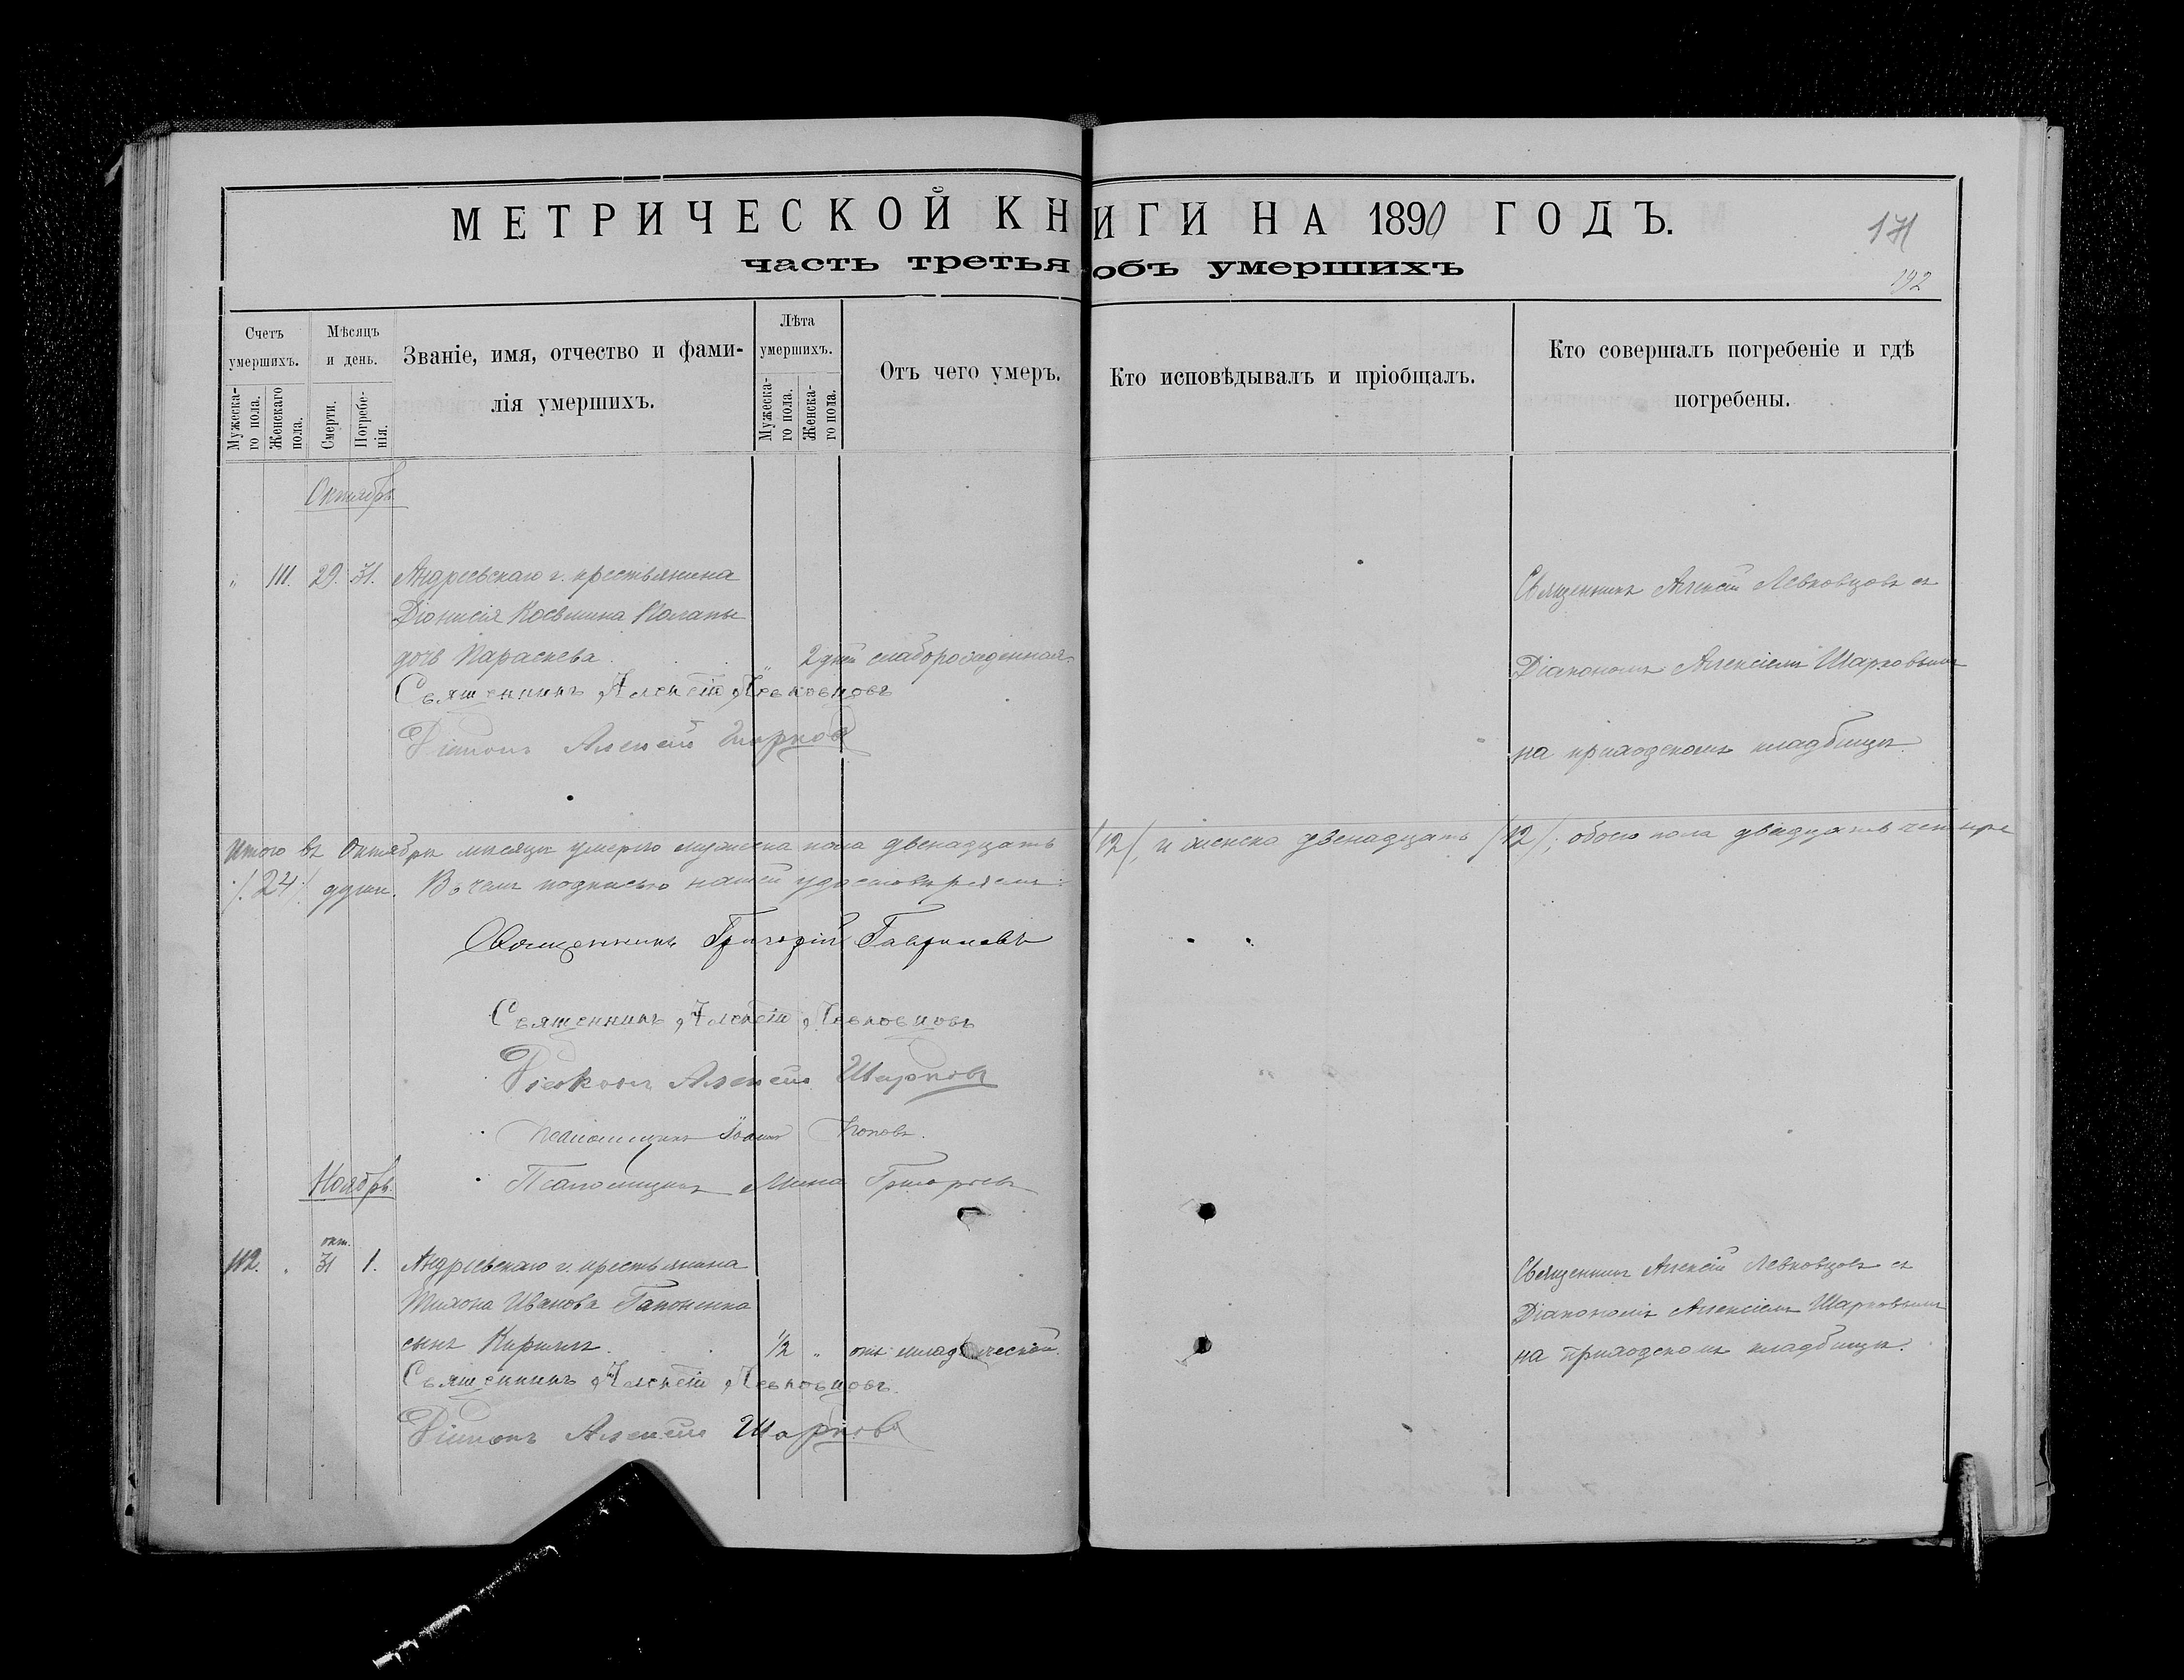 МЕТРИЧЕСКОЙ КНИГИ НА 1890 ГОДЪ.
171
часть третья объ умершихъ
192
Счетъ умершихъ.
Мужеска-го пола.
Женскаго пола.
Мѣсяцъ и день.
Смерти.
Погребе-нія.
Званіе, имя, отчество и фами-
лія умершихъ.
Лѣта умершихъ.
Мужеска-го пола.
Женска-го пола.
Отъ чего умеръ.
Кто исповѣдывалъ и пріобщалъ.
Кто совершалъ погребеніе и гдѣ
погребены.
Октябрь
" 111. 29. 31. Андреевскаго г. крестьянина
Діонисія Косьмина
дочь Параскева. " 2 дней слаборожденная.
Священникъ Алексій Левковцовъ
Діаконъ Алексѣй Шарковъ
Священникъ Алексій Левковцовъ съ
Діакономъ Алексіемъ Шарковымъ
на приходскомъ кладбищѣ.
Итого въ Октябрѣ мѣсяцѣ умерло мужеска пола двенадцать /12/, и женска двенадцать /12/; обоего пола двадцать четыре
/.24./ душъ. Въ чемъ подписью нашей удостовѣряемъ:
Священникъ Григорій Гавриловъ
Священникъ Алексій Левковцовъ
Діаконъ Алексѣй Шарковъ
Псаломщикъ Іоаннъ Поповъ.
Псаломщикъ Мина Григорьевъ
Ноябрь.
окт.
112. . 31 1. Андреевскаго г. крестьянина
Тихона Иванова Гапоненка
сынъ Кириллъ. 1/2 " отъ младенческой.
Священникъ Алексій Левковцовъ.
Діаконъ Алексѣй Шарковъ
Священникъ Алексій Левковцовъ съ
Діакономъ Алексіемъ Шарковымъ
на приходскомъ кладбищѣ.